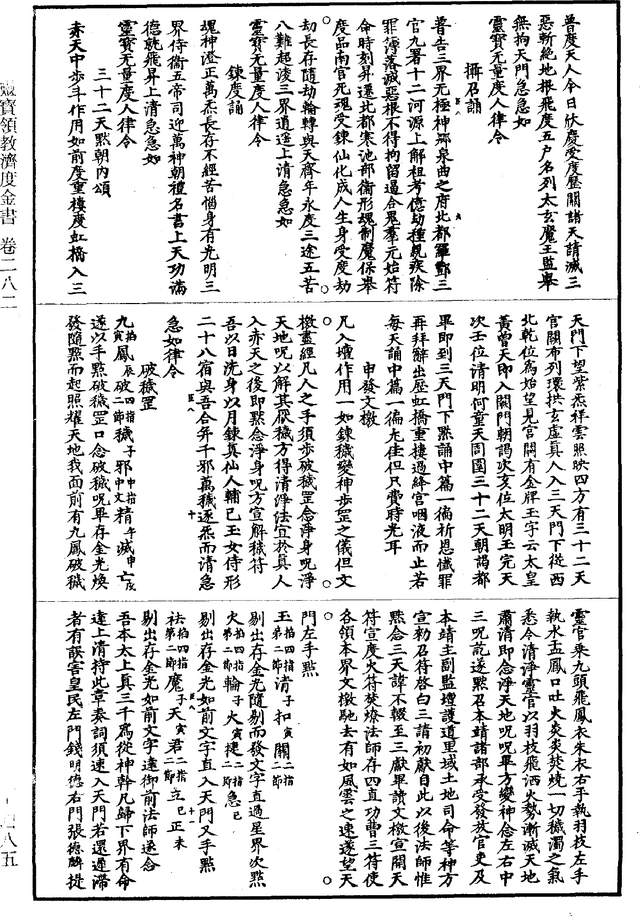 普度天人今日欣慶受度歷關諸天請滅三
惡斬絕地根飛度五戶名列太玄魔王監舉
無拘天門急急如
靈寶无量度人律令
攝召誦
普告三界无極神鄉泉曲之府北都羅酆三
官九署十二河源上解祖考億劫種親疾除
罪簿落滅惡根不得拘留逼合鬼羣元始符
命時刻昇遷北都寒池部衛形魂制魔保舉
度品南宮死魂受鍊仙化成人生身受度劫
劫長存隨劫輪轉與天齊年永度三途五苦
八難超凌三界逍遙上清急急如
靈寶无量度人律令
鍊度誦
魂神澄正萬炁長存不經苦惱身有光明三
界侍衛五帝司迎萬神朝禮名書上天功滿
德就飛昇上清急急如
靈寶无量度人律令
三十二天默朝內頌
赤天中步斗作用如前度重樓度虹橋入三
天門下望紫炁祥雲照映四方有三十二天
宮闕布列環拱玄虛真人入三天門下從西
北乾位為始望見宮闕有金牌玉字云太皇
黃曾天即入闕門朝謁次亥位太明玉完天
次壬位清明何童天周圍三十二天朝謁都
畢即到三天門下默誦中篇一徧祈恩懺罪
再拜辭出歷虹橋重樓過絳宮咽液而止若
每天誦中篇一徧尤佳但只費時光耳
申發文檄
凡入壇作用一如鍊穢變神步罡之儀但文
檄盡經凡人之手須步破穢罡念淨身呪淨
天地呪以解其厭穢方得清淨法宜於真人
入赤天之後即默念淨身呪方宣解穢符
吾以日洗身以月鍊真仙人輔已玉女侍形
二十八宿與吾合并千邪萬穢逐炁而清急
急如律令
破穢罡
九掐寅鳳辰破四指二節穢子邪中指中文精午滅申亡戌
遂以手默破穢罡口念破穢呪畢存金光煥
發隨默而起照耀天地我面前有九鳳破穢
靈官乘九頭飛鳳衣朱衣右手執羽技左手
執水盂鳳口吐火炎炎焚燒一切穢濁之氣
悉令清淨靈官以羽技飛洒火勢漸滅天地
肅清即念淨天地呪呪畢方變神念左右中
三呪訖遂默召本靖諸部承受發放官吏及
本靖主副監壇護道里域土地司命等神方
宣勑召符啓白三請初獻自此以後法師惟
默念三天諱不輟至三獻畢讀文檄宣關天
符宣度火符焚燎法師存四直功曹三符使
各領本界文檄馳去有如風雲之速遂望天
門左手默
玉掐四指第二節清子扣寅關二指二節
剔出存金光隨剔而發文字直過星界次默
火掐四指第二節輪子火寅捷二指二節急巳
剔出存金光如前文字直入天門又手默
祛掐四指第二節魔子天寅君二指二節立巳正未
剔出存金光如前文字達御前法師遂念
吾本太上真三千為從神幹凡歸下界有命
達上清持此章奏詞須速入天門若還遲滯
者有誤害皇民左門錢明德右門張德麟捉
靈寶領教濟度金書 卷二八二